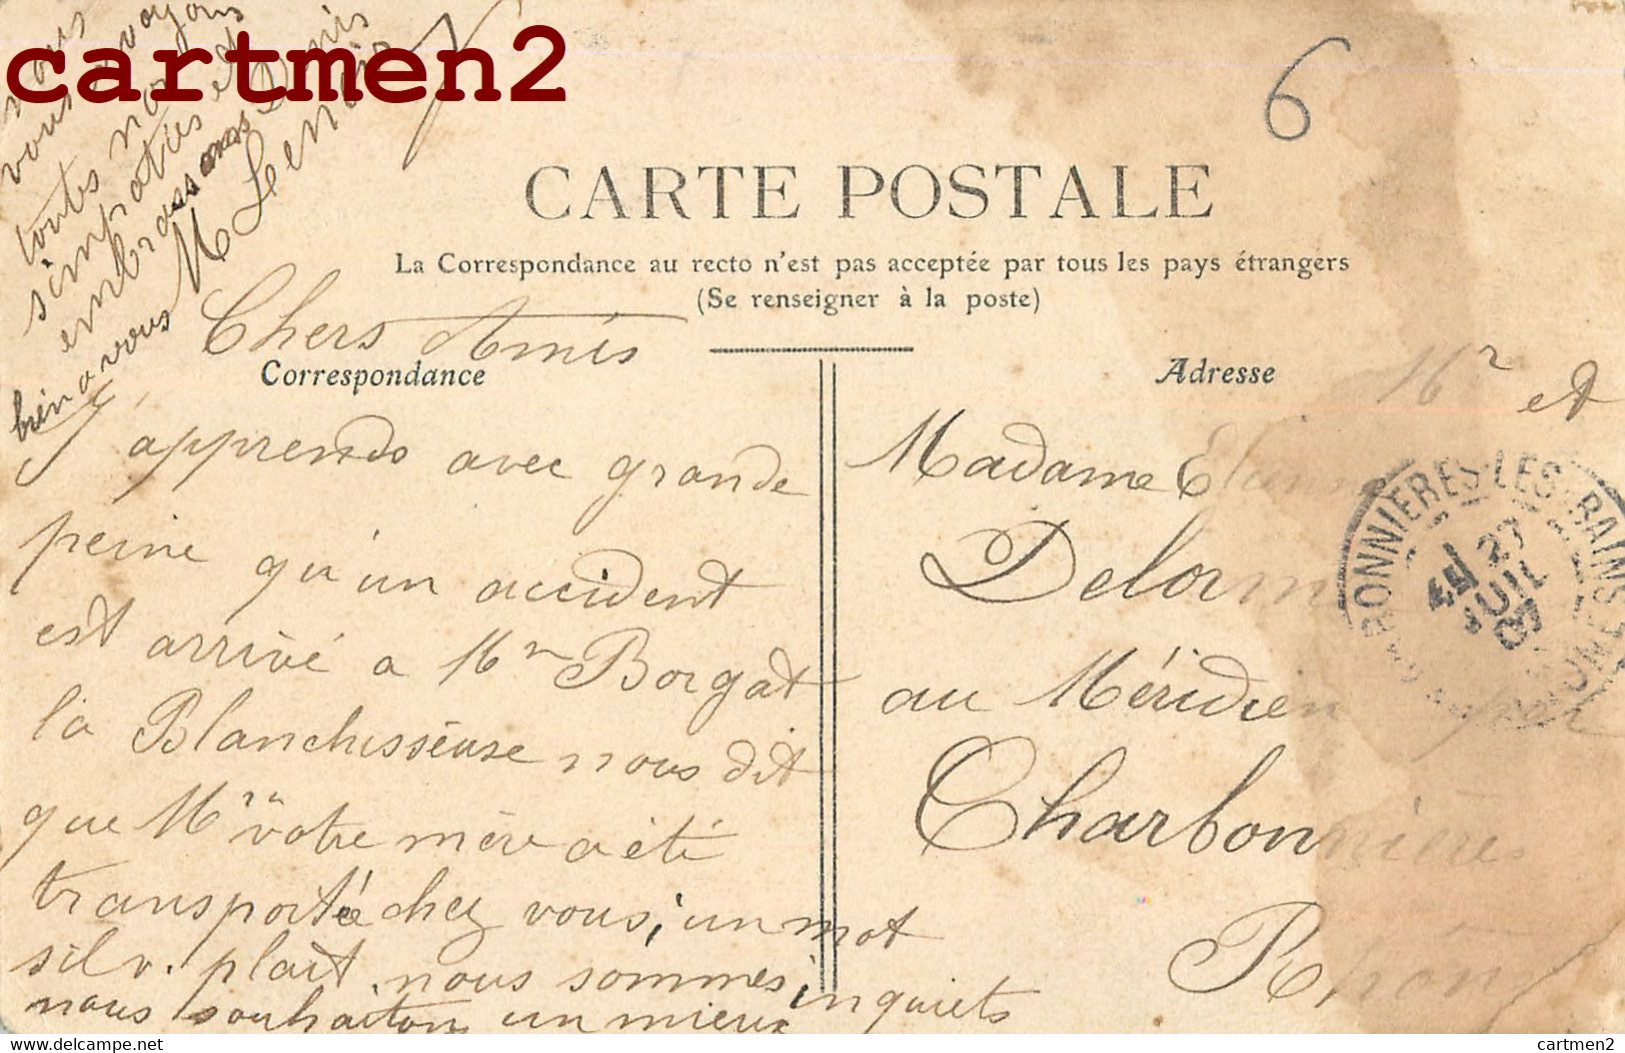 cartmen2
6
CARTE POSTALE
La Correspondance au recto n'est pas acceptée par tous les pays étrangers
(Se renseigner à la poste)
Correspondance
Adresse
Chers Amis
J'apprends avec grande
peine qu'un accident
est arrivé a Mme Borgat
la Blanchisseuse nous dit
que Mme votre mère a été
transportée chez vous, un mot
sil v. plait, nous sommes inquiets
nous souhaitons un mieux
nous
vous envoyons
toutes nos
simpaties et
embrassons Denis
bien a vous M Lenoir
Mr et
Madame Etienne
Delorme
au Méridien par
Charbonnières
Rhône
CHARBONNIERES-LES-BAINS
27
JUIL
07
RHONE
www.delcampe.net
cartmen2